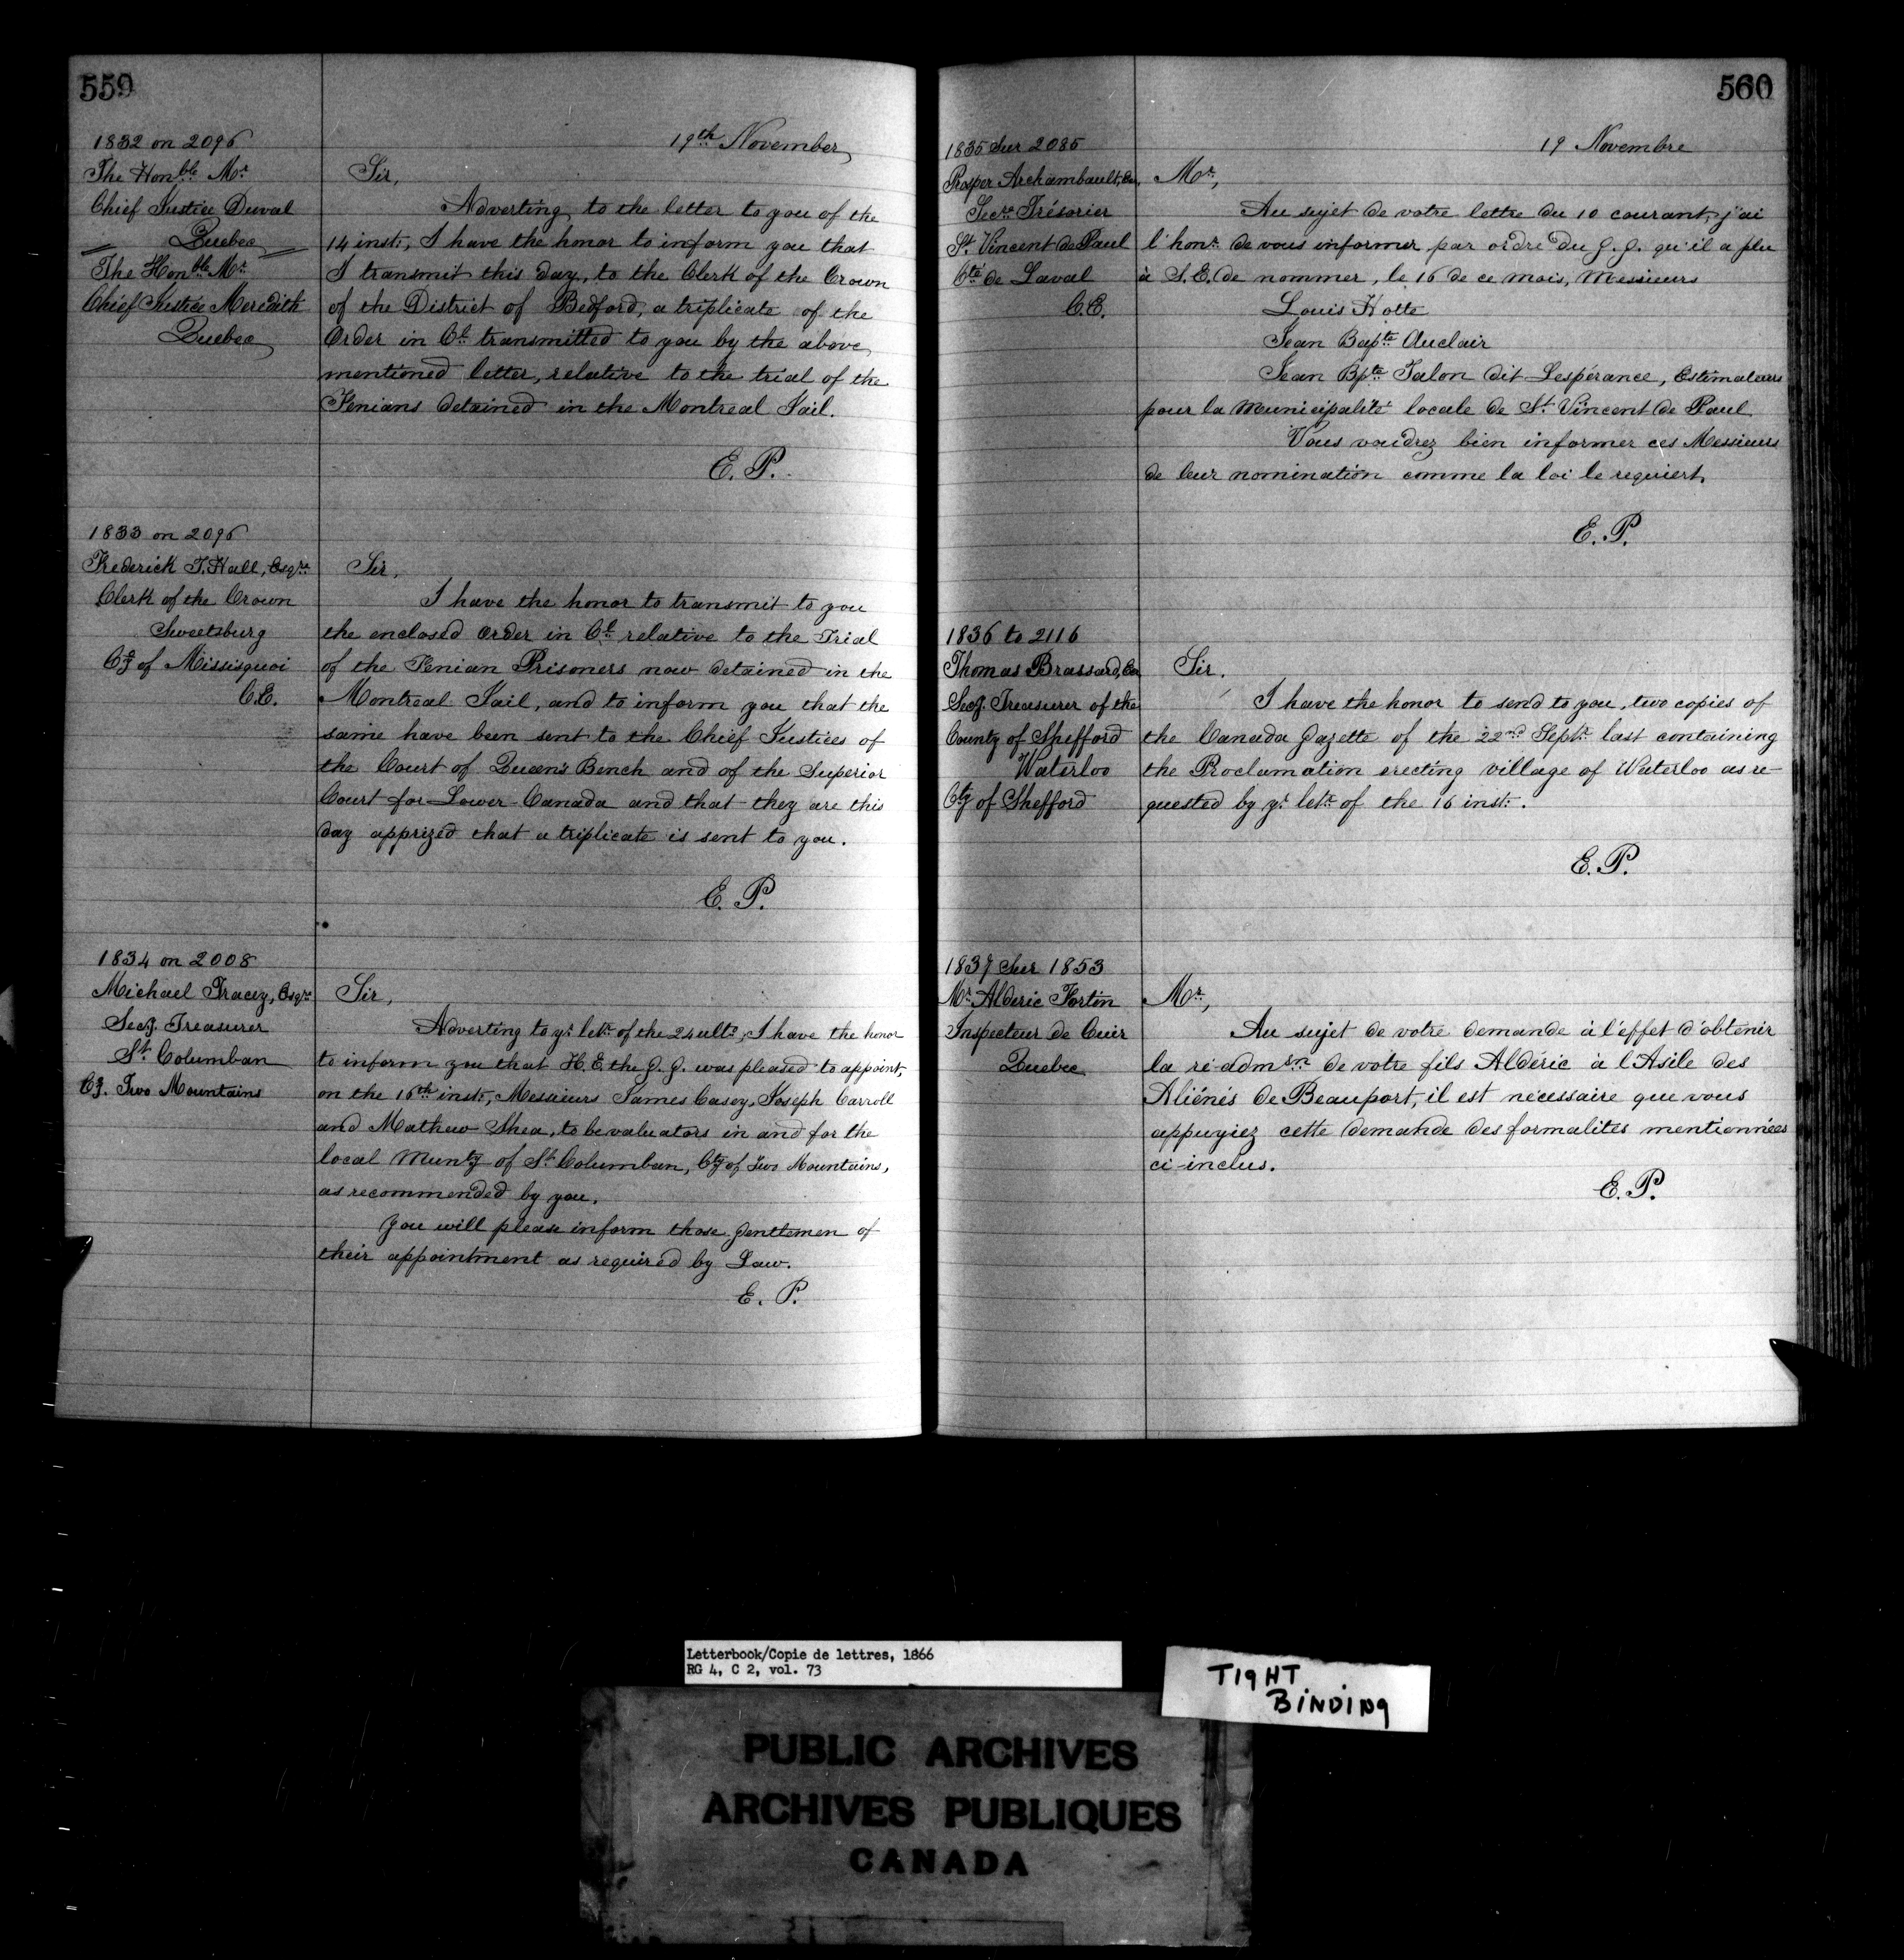 559
19th November
1832 on 2096
The Honble Mr
Chief Justice Duval
Quebec
The Honble Mr
Chief Justice Meredith
Quebec
Sir,
Adverting to the letter to you of the
14 inst:, I have the honor to inform you that
I transmit this day, to the Clerk of the Crown
of the District of Bedford, a triplicate of the
Order in Cl transmitted to you by the above
mentioned letter, relative to the trial of the
Fenians detained in the Montreal Jail.
E. P.
1833 on 2096
Frederick T. Hall, Esqre
Clerk of the Crown
Sweetsburg
Cty of Missisquoi
C.E.
Sir,
I have the honor to transmit to you
the enclosed Order in Cl relative to the Trial
of the Fenian Prisoners now detained in the
Montreal Jail, and to inform you that the
same have been sent to the Chief Justices of
the Court of Queen's Bench and of the Superior
Court for Lower Canada and that they are this
day apprized that a triplicate is sent to you.
E. P.
1834 on 2008
Michael Tracey, Esqre
Secy. Treasurer
St. Columban
Cy. Two Mountains
Sir,
Adverting to yr letr of the 24 ulto, I have the honor
to inform you that H.E. the G. G. was pleased to appoint,
on the 16th inst:, Messieurs James Casey, Joseph Carroll
and Mathew Shea, to be valuators in and for the
local Munty of St. Columban, Cty of Two Mountains,
as recommended by you.
You will please inform those gentlemen of
their appointment as required by Law.
E. P.
560
19 Novembre
1835 Sur 2085
Prosper Archambault, Er,
Secre Trésorier
St. Vincent de Paul
Cté de Laval
C.E.
Mr,
Au sujet de votre lettre du 10 courant, j'ai
l'honr de vous informer par ordre du G. G. qu'il a plu
à S.E. de nommer, le 16 de ce mois, Messieurs
Louis Hotte
Jean Bapte Auclair
Jean Bpte Talon dit Lespérance, Estimateurs
pour la Municipalité locale de St. Vincent de Paul
Vous voudrez bien informer ces Messieurs
de leur nomination comme la loi le requiert.
E. P.
1836 to 2116
Thomas Brassard, Er
Secy. Treasurer of the
County of Shefford
Waterloo
Cty of Shefford
Sir.
I have the honor to send to you, two copies of
the Canada Gazette of the 22nd Septr last containing
the Proclamation erecting village of Waterloo as re-
quested by yr letr of the 16 inst:.
E. P.
1837 Sur 1853
Mr. Alderic Fortin
Inspecteur de Cuir
Quebec
Mr,
Au sujet de votre demande à l'effet d'obtenir
la ré-admson de votre fils Aldéric à l'Asile des
Aliénés de Beauport, il est nécessaire que vous
appuyiez cette demande des formalités mentionnées
ci-inclus.
E. P.
Letterbook/Copie de lettres, 1866
RG 4, C 2, vol. 73
TIGHT
BINDING
PUBLIC ARCHIVES
ARCHIVES PUBLIQUES
CANADA